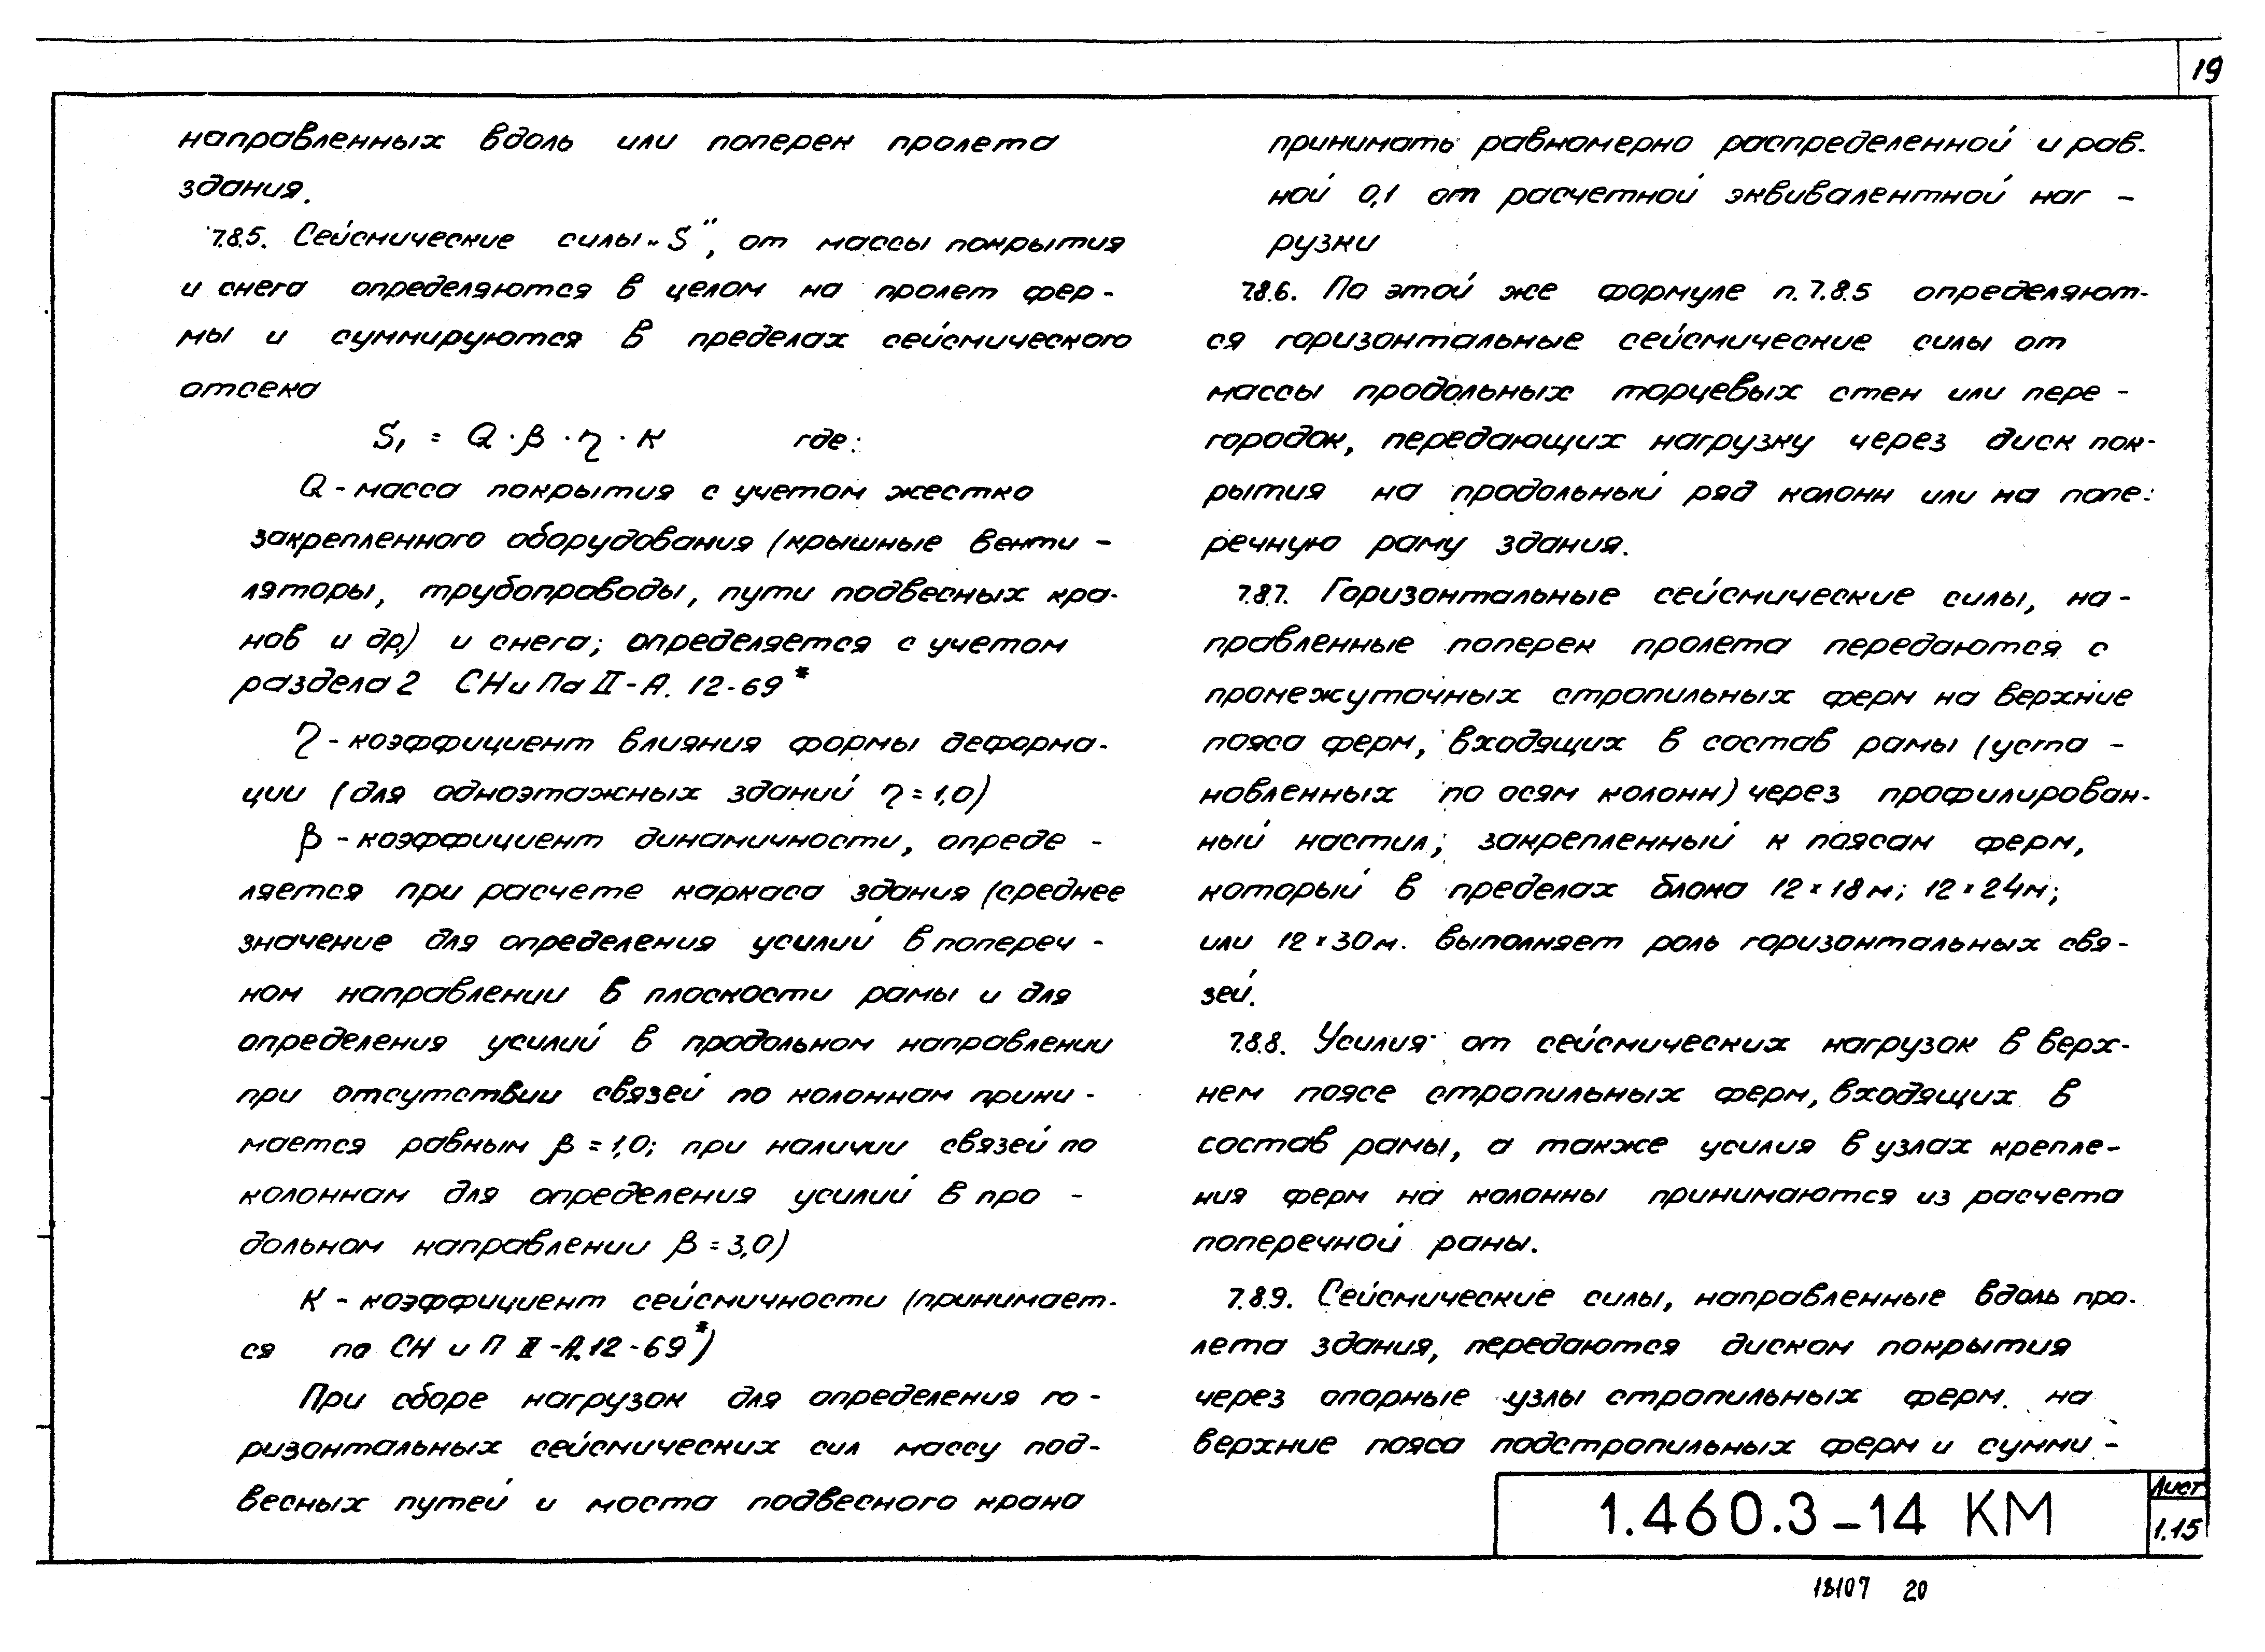 19
направленных вдоль или поперек пролета
здания.
7.8.5. Сейсмические силы „S", от массы покрытия
и снега определяются в целом на пролет фер-
мы и суммируются в пределах сейсмического
отсека
S₁ = Q · β · η · К где:
Q - масса покрытия с учетом жестко
закрепленного оборудования (крышные венти-
ляторы, трубопроводы, пути подвесных кра-
нов и др.) и снега; определяется с учетом
раздела 2 СНиПа II-А. 12-69*
η - коэффициент влияния формы деформа-
ции (для одноэтажных зданий η = 1,0)
β - коэффициент динамичности, опреде-
ляется при расчете каркаса здания (среднее
значение для определения усилий в попереч-
ном направлении в плоскости рамы и для
определения усилий в продольном направлении
при отсутствии связей по колоннам прини-
мается равным β = 1,0; при наличии связей по
колоннам для определения усилий в про-
дольном направлении β = 3,0)
К - коэффициент сейсмичности (принимает-
ся по СН и П II-А.12-69*)
При сборе нагрузок для определения го-
ризонтальных сейсмических сил массу под-
весных путей и моста подвесного крана
принимать равномерно распределенной и рав-
ной 0,1 от расчетной эквивалентной наг-
рузки
7.8.6. По этой же формуле п. 7.8.5 определяют-
ся горизонтальные сейсмические силы от
массы продольных торцевых стен или пере-
городок, передающих нагрузку через диск пок-
рытия на продольный ряд колонн или на попе-
речную раму здания.
7.8.7. Горизонтальные сейсмические силы, на-
правленные поперек пролета передаются с
промежуточных стропильных ферм на верхние
пояса ферм, входящих в состав рамы (уста-
новленных по осям колонн) через профилирован-
ный настил; закрепленный к поясам ферм,
который в пределах блока 12×18м; 12×24м;
или 12×30м. выполняет роль горизонтальных свя-
зей.
7.8.8. Усилия от сейсмических нагрузок в верх-
нем поясе стропильных ферм, входящих в
состав рамы, а также усилия в узлах крепле-
ния ферм на колонны принимаются из расчета
поперечной раны.
7.8.9. Сейсмические силы, направленные вдоль про-
лета здания, передаются диском покрытия
через опорные узлы стропильных ферм. на
верхние пояса подстропильных ферм и сумми-
1.460.3-14 КМ
Лист
1.15
18107 20